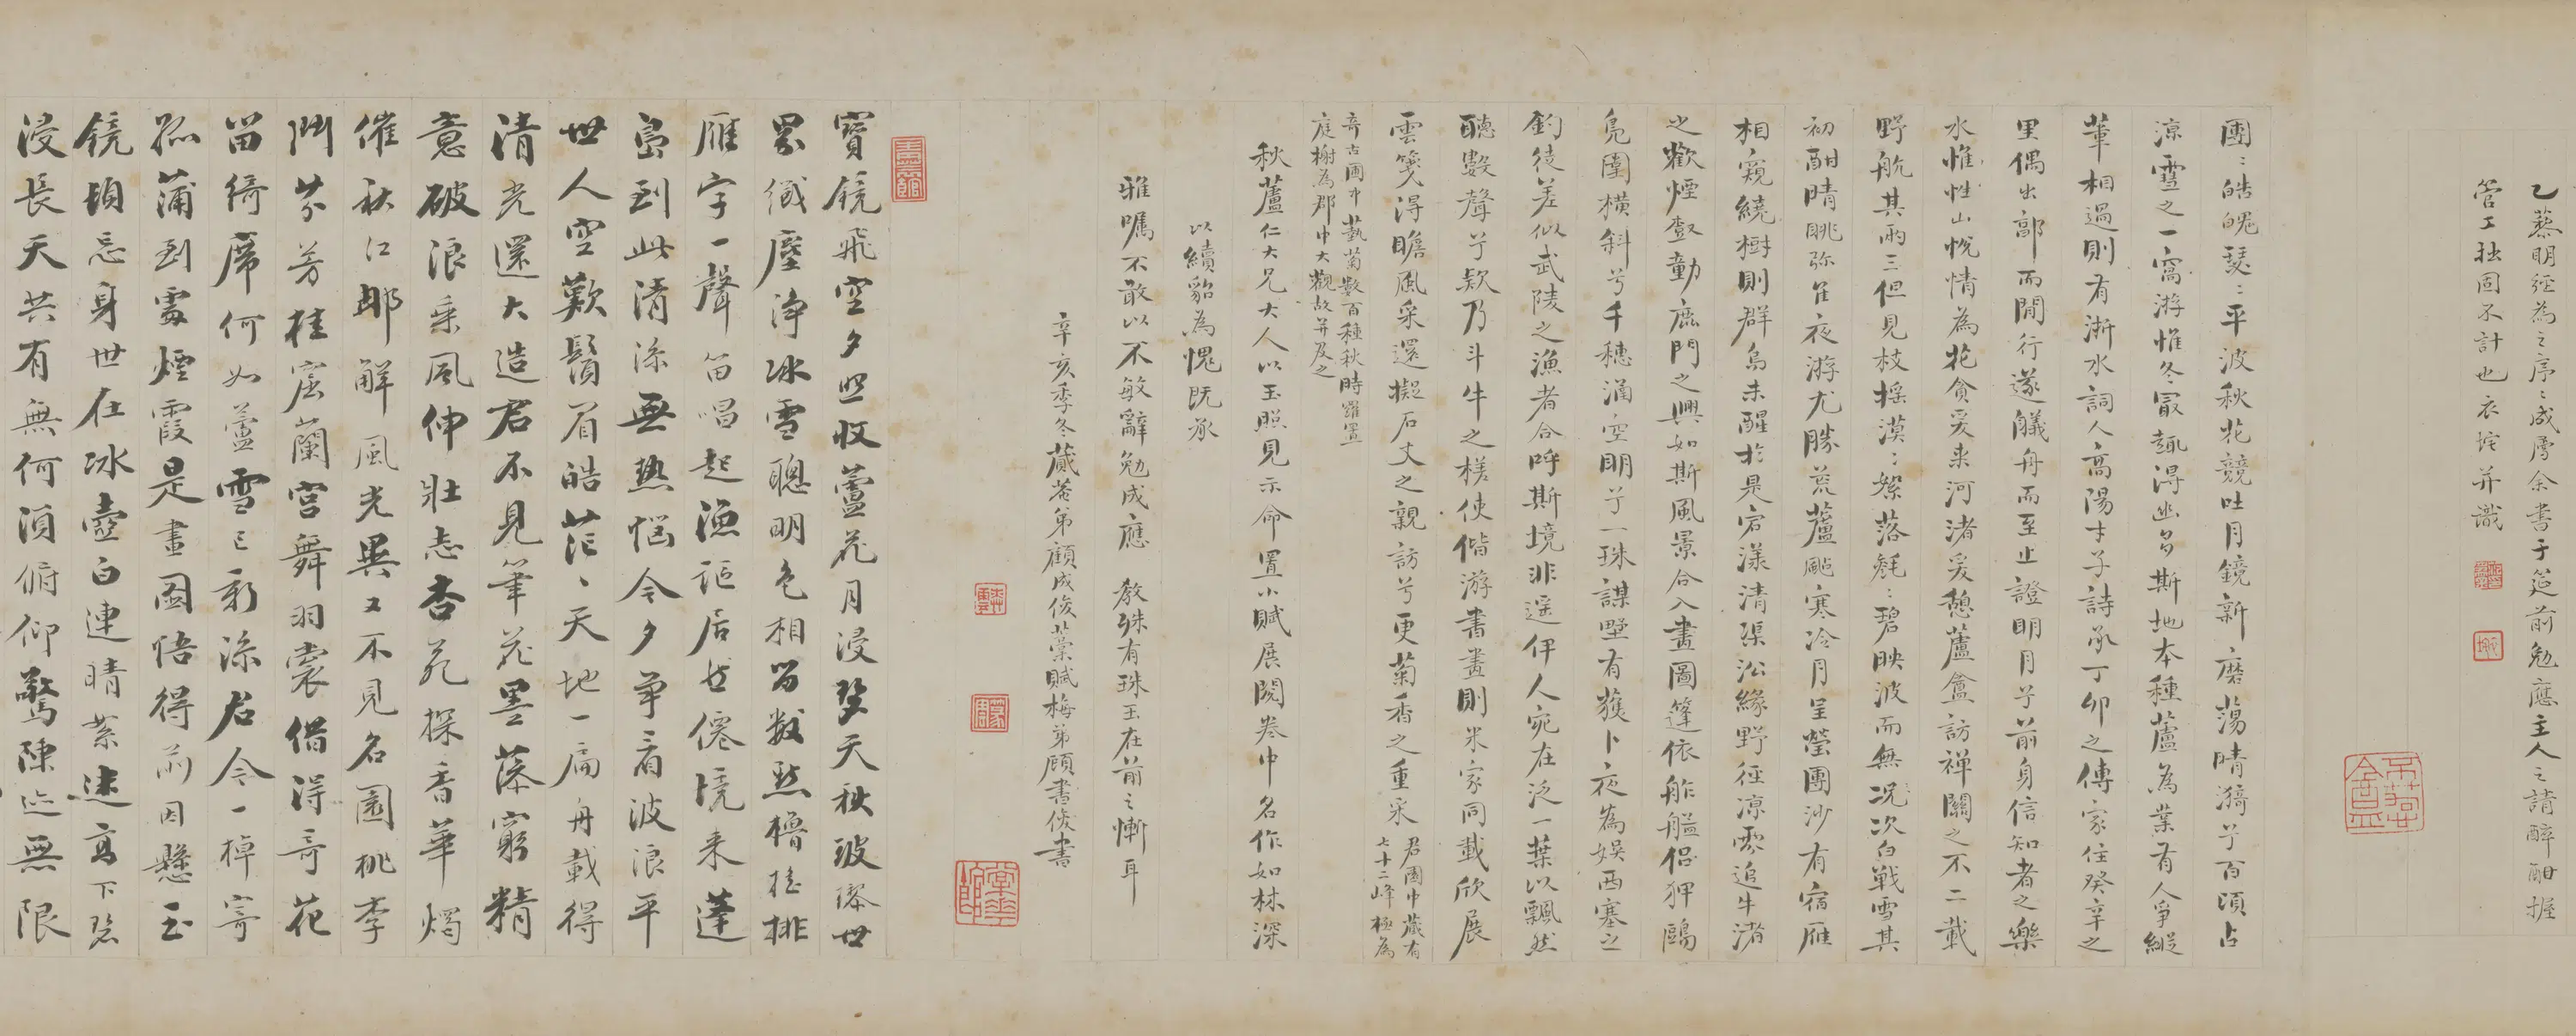 乙蒸明經為之序序成屬余書于筵前勉應主人之請醉酣握
管工拙固不計也衣垞并識
團團皓魄瑟瑟平波秋花競吐月鏡新磨蕩晴漪兮百頃占
涼雪之一窩游惟冬最趣得幽多斯地本種蘆為業有人爭縱
葦相過則有淅水詞人高陽才子詩承丁卯之傳家住癸辛之
里偶出郭而閒行遂艤舟而至止證明月兮前身信知者之樂
水惟性山悅情為花貪爰来河渚爰憩蘆盦訪禅關之不二載
野航其兩三但見枝搖漠漠絮落毿毿碧映波而無况次白戰雪其
初酣晴眺弥佳夜游尤勝荒蘆颭寒冷月呈瑩團沙有宿雁
相窺繞樹則群鳥未醒於是宕漾清渠沿緣野徑涼雲追牛渚
之歡煙壑動鹿門之興如斯風景合入畫圖篷依舴艋侣狎鷗
鳧圍橫斜兮千穗涌空明兮一珠謀墅有獲卜夜為娱西塞之
釣徒差似武陵之漁者合呼斯境非遥伊人宛在泛一葉以飄然
聽數聲兮欵乃斗牛之槎使偕游書畫則米家同載欣展
雲箋又得瞻風采還擬石丈之親訪兮更菊香之重采 君園中藏有
七十二峰極為
奇古圃中藝菊數百種秋時羅置
庭榭為郡中大觀故并及之
秋蘆仁大兄大人以玉照見示命置小賦展閱卷中名作如林深
以續貂為愧既承
雅囑不敢以不敏辭勉成應 教殊有珠玉在前之慚耳
辛亥季冬藏菴弟顧成俊藁賦梅弟顧書俊書
寶鏡飛空夕照收蘆花月浸碧天秋玻瓈世
界纖塵淨冰雪聰明色相留數點檣桅排
雁字一聲笛唱起漁謳居士僊境来蓬
島到此清涼無熱惱今夕爭看波浪平
世人空歎鬢眉皓茫茫天地一扁舟載得
清光還大造君不見筆花墨藻窮精
意破浪乘風伸壯志杏苑探香華燭
催秋江耶解風光異又不見名園桃李
鬥芬芳桂窟蘭宫舞羽裳借得奇花
留綺席何如蘆雪已新涼君今一棹寄
孤蒲到處煙霞是畫圖悟得前因懸玉
鏡頓忘身世在冰壺白連晴絮迷高下碧
浸長天共有無何須俯仰驚陳迹無限